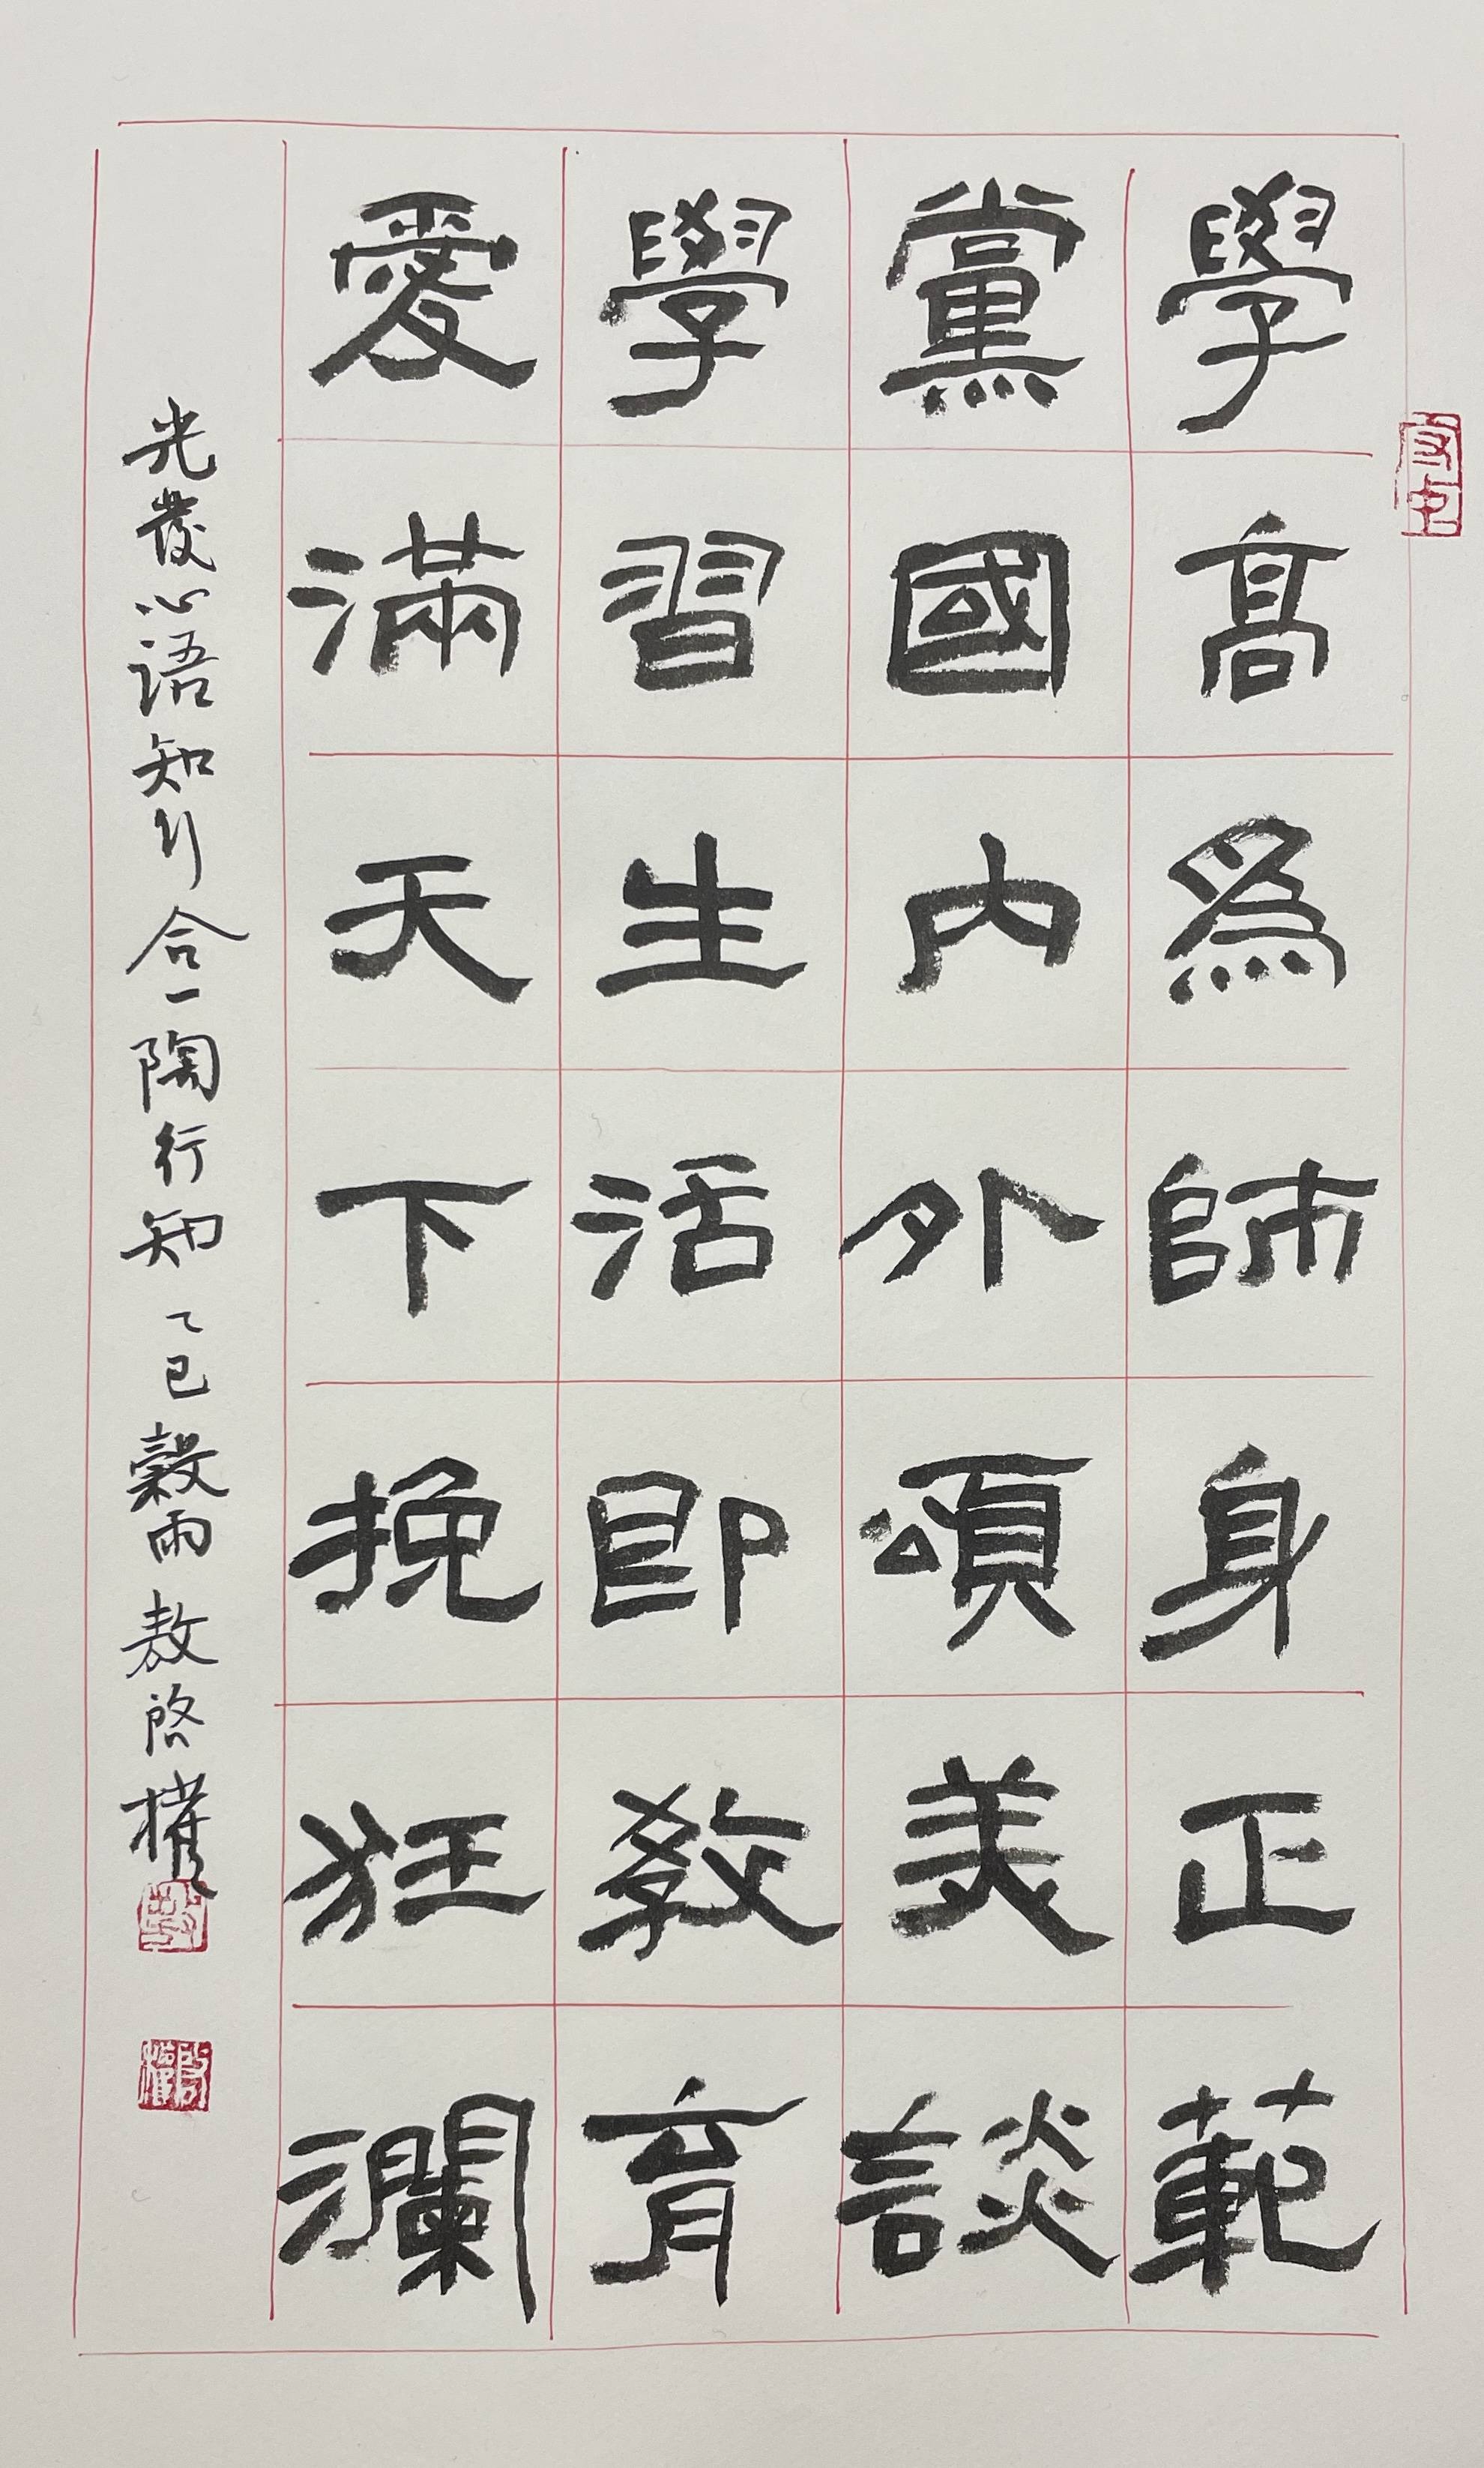 學高爲師身正範
黨國內外頌美談
學習生活即教育
愛滿天下挽狂瀾
光發心语知行合一陶行知 乙巳穀雨敖啓權
啓權